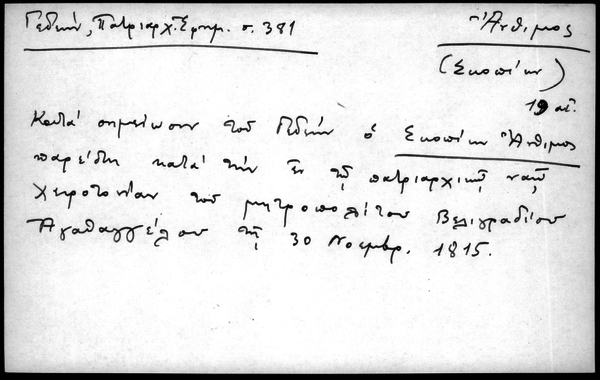 Γεδεών, Πατριαρχ. Ἐφημ. σ. 381
Ἄνθιμος
(Σκοπίων)
19 αἰ.
Κατά σημείωσιν τοῦ Γεδεών ὁ Σκοπίων Ἄνθιμος
παρέστη κατά τήν ἐν τῷ πατριαρχικῷ ναῷ
χειροτονίαν τοῦ μητροπολίτου Βελιγραδίου
Ἀγαθαγγέλου τῇ 30 Νοεμβρ. 1815.